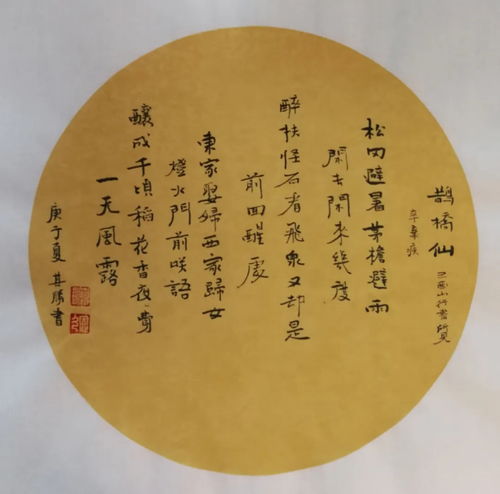 鵲橋仙 己酉山行書所見
辛棄疾
松岡避暑茅檐避雨
閑去閑來幾度
醉扶怪石看飛泉又却是
前回醒處
東家娶婦西家歸女
燈火門前咲語
釀成千頃稻花香夜〻費
一天風露
庚子夏 其勝書